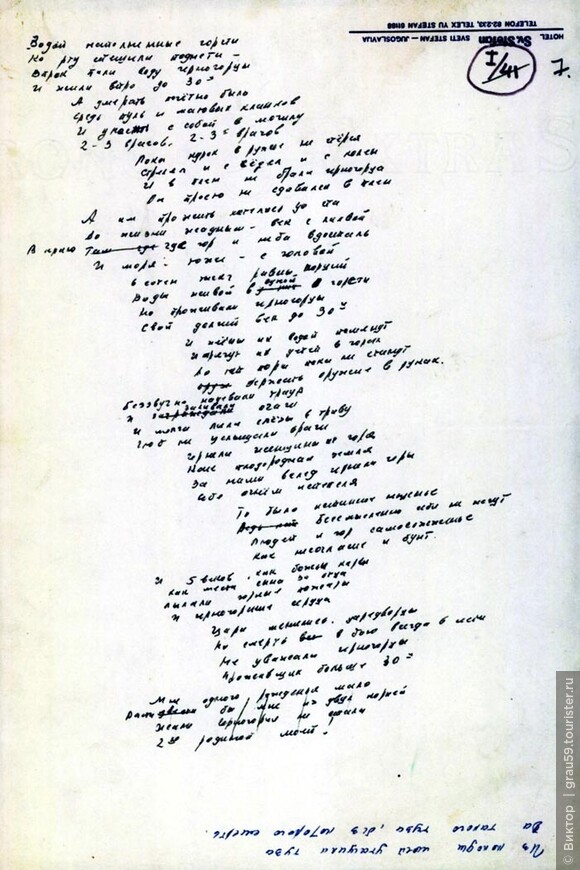 HOTEL Sv. Stefan SVETI STEFAN — JUGOSLAVIJA
TELEFON 82-233, TELEX YU STEFAN 61188
I/41
7.
Водой наполненные горсти
Ко рту спешили поднести –
Впрок пили воду черногорцы
И жили впро до 30ти
А умереть почётно было
Средь пуль и матовых клинков
И унасть с собой в могилу
2-3 врагов, 2-3х врагов
Пока курок в ружье не стёрся
Стрелял и с седел и с колен
И в плен не брали черногорца
Он просто не сдавался в плен
А им прожить хотелось до ста
До жизни жадным – век с лихвой
В краю Там где где гор и неба вдосталь
И моря – тоже – с головой
6 сотен тысяч равных порций
Воды живой в одной горсти
Но проживали черногорцы
Свой долгий век до 30ти
И жёны их водой помянут
И прячут их детей в горах
До той поры пока не станут
Держать оружие в руках.
Беззвучно надевали траур
И заливали очаги
И молча лили слёзы в траву
Чтоб не услышали враги
Чернели женщины от горя
Как плодородная земля
За ними вслед чернели горы
Себя огнём испепеля
То было истинное мщенье
Бессмысленно себя не жгут
Людей и гор самосожженье
Как несогласие и бунт.
И 5 веков – как божьи кары
как мести сына за отца
пылали горные пожары
И черногорские сердца
Цари менялись, царедворцы
Но смерть в бою всегда в чести
Не уважали черногорцы
Проживших больше 30ти
Мне одного рожденья мало
Расти бы мне из двух корней
Жаль Черногория не стала
2ою родиной моей!
Из колоды моей утащили туза
Да такого туза, без которого смерть.
© Виктор | grau59.tourister.ru